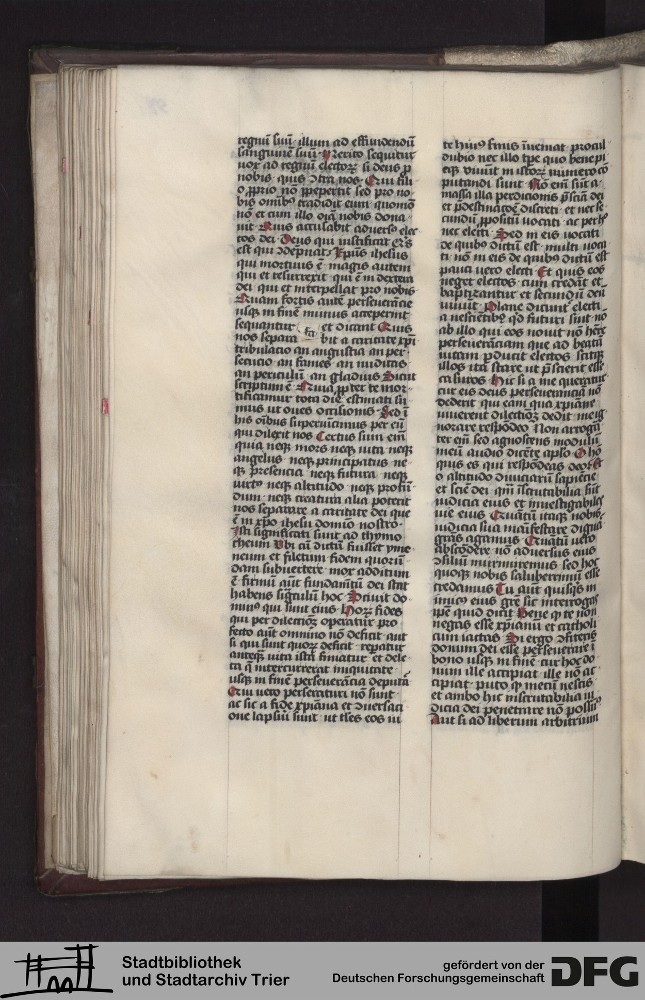 regnū suū · illum ad effundendū
sanguinē suū · Merito sequitur
vox ad regnū electoꝝ si deus ꝓ
nobis · quis ɔtra nos · Qui fili
o ꝓprio nō peperrcit sed pro no-
bis omībꝰ tradidit eum quomō
nō et cum illo oīa nobis dona-
uit · Quis accusabit aduersꝰ elec
tos dei · Deus qui iustificat · q̄s
est qui ɔdēpnat · Xpūs ihesus
qui mortuus ē magis autem
qui et resurrexit · qui ē in dextera
dei · qui et interpellat pro nobis
Quam fortis autē perseuerācie
usqꝫ in finē munus acceperint
sequantur · et dicant Quis
nos separa bit a caritate xp̄i
tribulacio an angustia an per-
secucio an fames an nuditas
an periculū an gladius Sicut
scriptum ē Quia ꝓpter te mor-
tificamur tota die · estimati su
mus ut oues occisionis · Sed ī
his oībus superuicimus per eū
qui dilexit nos Certus sum enī
quia neqꝫ mors neqꝫ uita neqꝫ
angelus neqꝫ principatus ne-
qꝫ presencia neqꝫ futura neqꝫ
uirtꝰ neqꝫ altitudo neqꝫ profū
dum neqꝫ creatura alia poterit
nos separare a caritate dei que
ē in xp̄o ihesu domino nostro ·
Isti significati sunt ad thymo
theum Vbi cū dictū fuisset yme-
neum et filetum fidem quorū-
dam subuertere mox additum
ē firmū aūt fundamētū dei stat
habens signaculū hoc Nouit do
minꝰ qui sunt eius · Hoꝝ fides
qui per dilectionē operatur pro
fecto aūt omnino nō deficit aut
si qui sunt quoꝝ deficit · reparatur
anteqꝫ vita ista finiatur et dele
ta q̄ intercurrerat iniquitate
usqꝫ in finē perseuerācia deputat̄
Qui uero perseraturi nō sunt ·
ac sic a fide xp̄iana et ɔuersaci
one lapsuri sunt · ut tales eos ui
te huiꝰ finis īueniat · procul
dubio nec illo tp̄e quo bene pi
eqꝫ viuunt in istoꝝ numero cō
putandi sunt · Nō enī sunt a
massa illa perdicionis p̄sciētia dei
et p̄destinacōe discreti · et nec se
cundū ꝓpositū vocati · ac per hꝰ
nec electi · Sed in eis vocati
de quibꝰ dictū est · multi uoca
ti · nō in eis de quibꝰ dictū est
pauci uero electi · Et quis eos
neget electos · cum credāt et
baptizantur et secundū deū
uiuūt · Plane dicunt̄ electi
a nescientibꝰ qđ futuri sunt · nō
ab illo qui eos nouit nō hēre
perseuerāciam que ad beatā
uitam ꝑducit electos · scitqꝫ
illos ita stare ut p̄scierit esse
casuros · Hic si a me queratur
cur eis deus perseueranciā nō
dederit · qui eam qua xp̄iane
uiuerent dilectionē dedit · me ig-
norare respōdeo · Non arrogā
ter enī sed agnoscens modulū
meū audio dicētē aplm · O ho
quis es qui respōdeas deo · Et
o altitudo diuiciarū sapiēcie
et sciēcie dei · qm̄ īscrutabilia sūt
iudicia eius et inuestigabiles
uie eius · Quātū itaqꝫ nobis
iudicia sua māifestare dignat̄
grās agamus · Quātū uero
abscōdere nō aduersus eius
ɔsiliū murmuremus sed hoc
quoqꝫ nobis saluberrimū esse
credamus Tu aut quisqꝫ in
imicꝰ eius grē sic interrogas
ip̄e quid dicis Bene q̄ te non
negas esse xp̄ianū et catholi
cum iactas · Si ergo ɔfiteris
donum dei esse perseuerare ī
bono usqꝫ in finē · cur hoc do
num ille accipiat ille nō ac-
cipiat · puto q̄ mecū nescis
et ambo hic inscrutabilia iu
dicia dei penetrare nō possumꝰ
Aut si ad liberum arbitrium
Stadtbibliothek
und Stadtarchiv Trier
gefördert von der
Deutschen Forschungsgemeinschaft
DFG